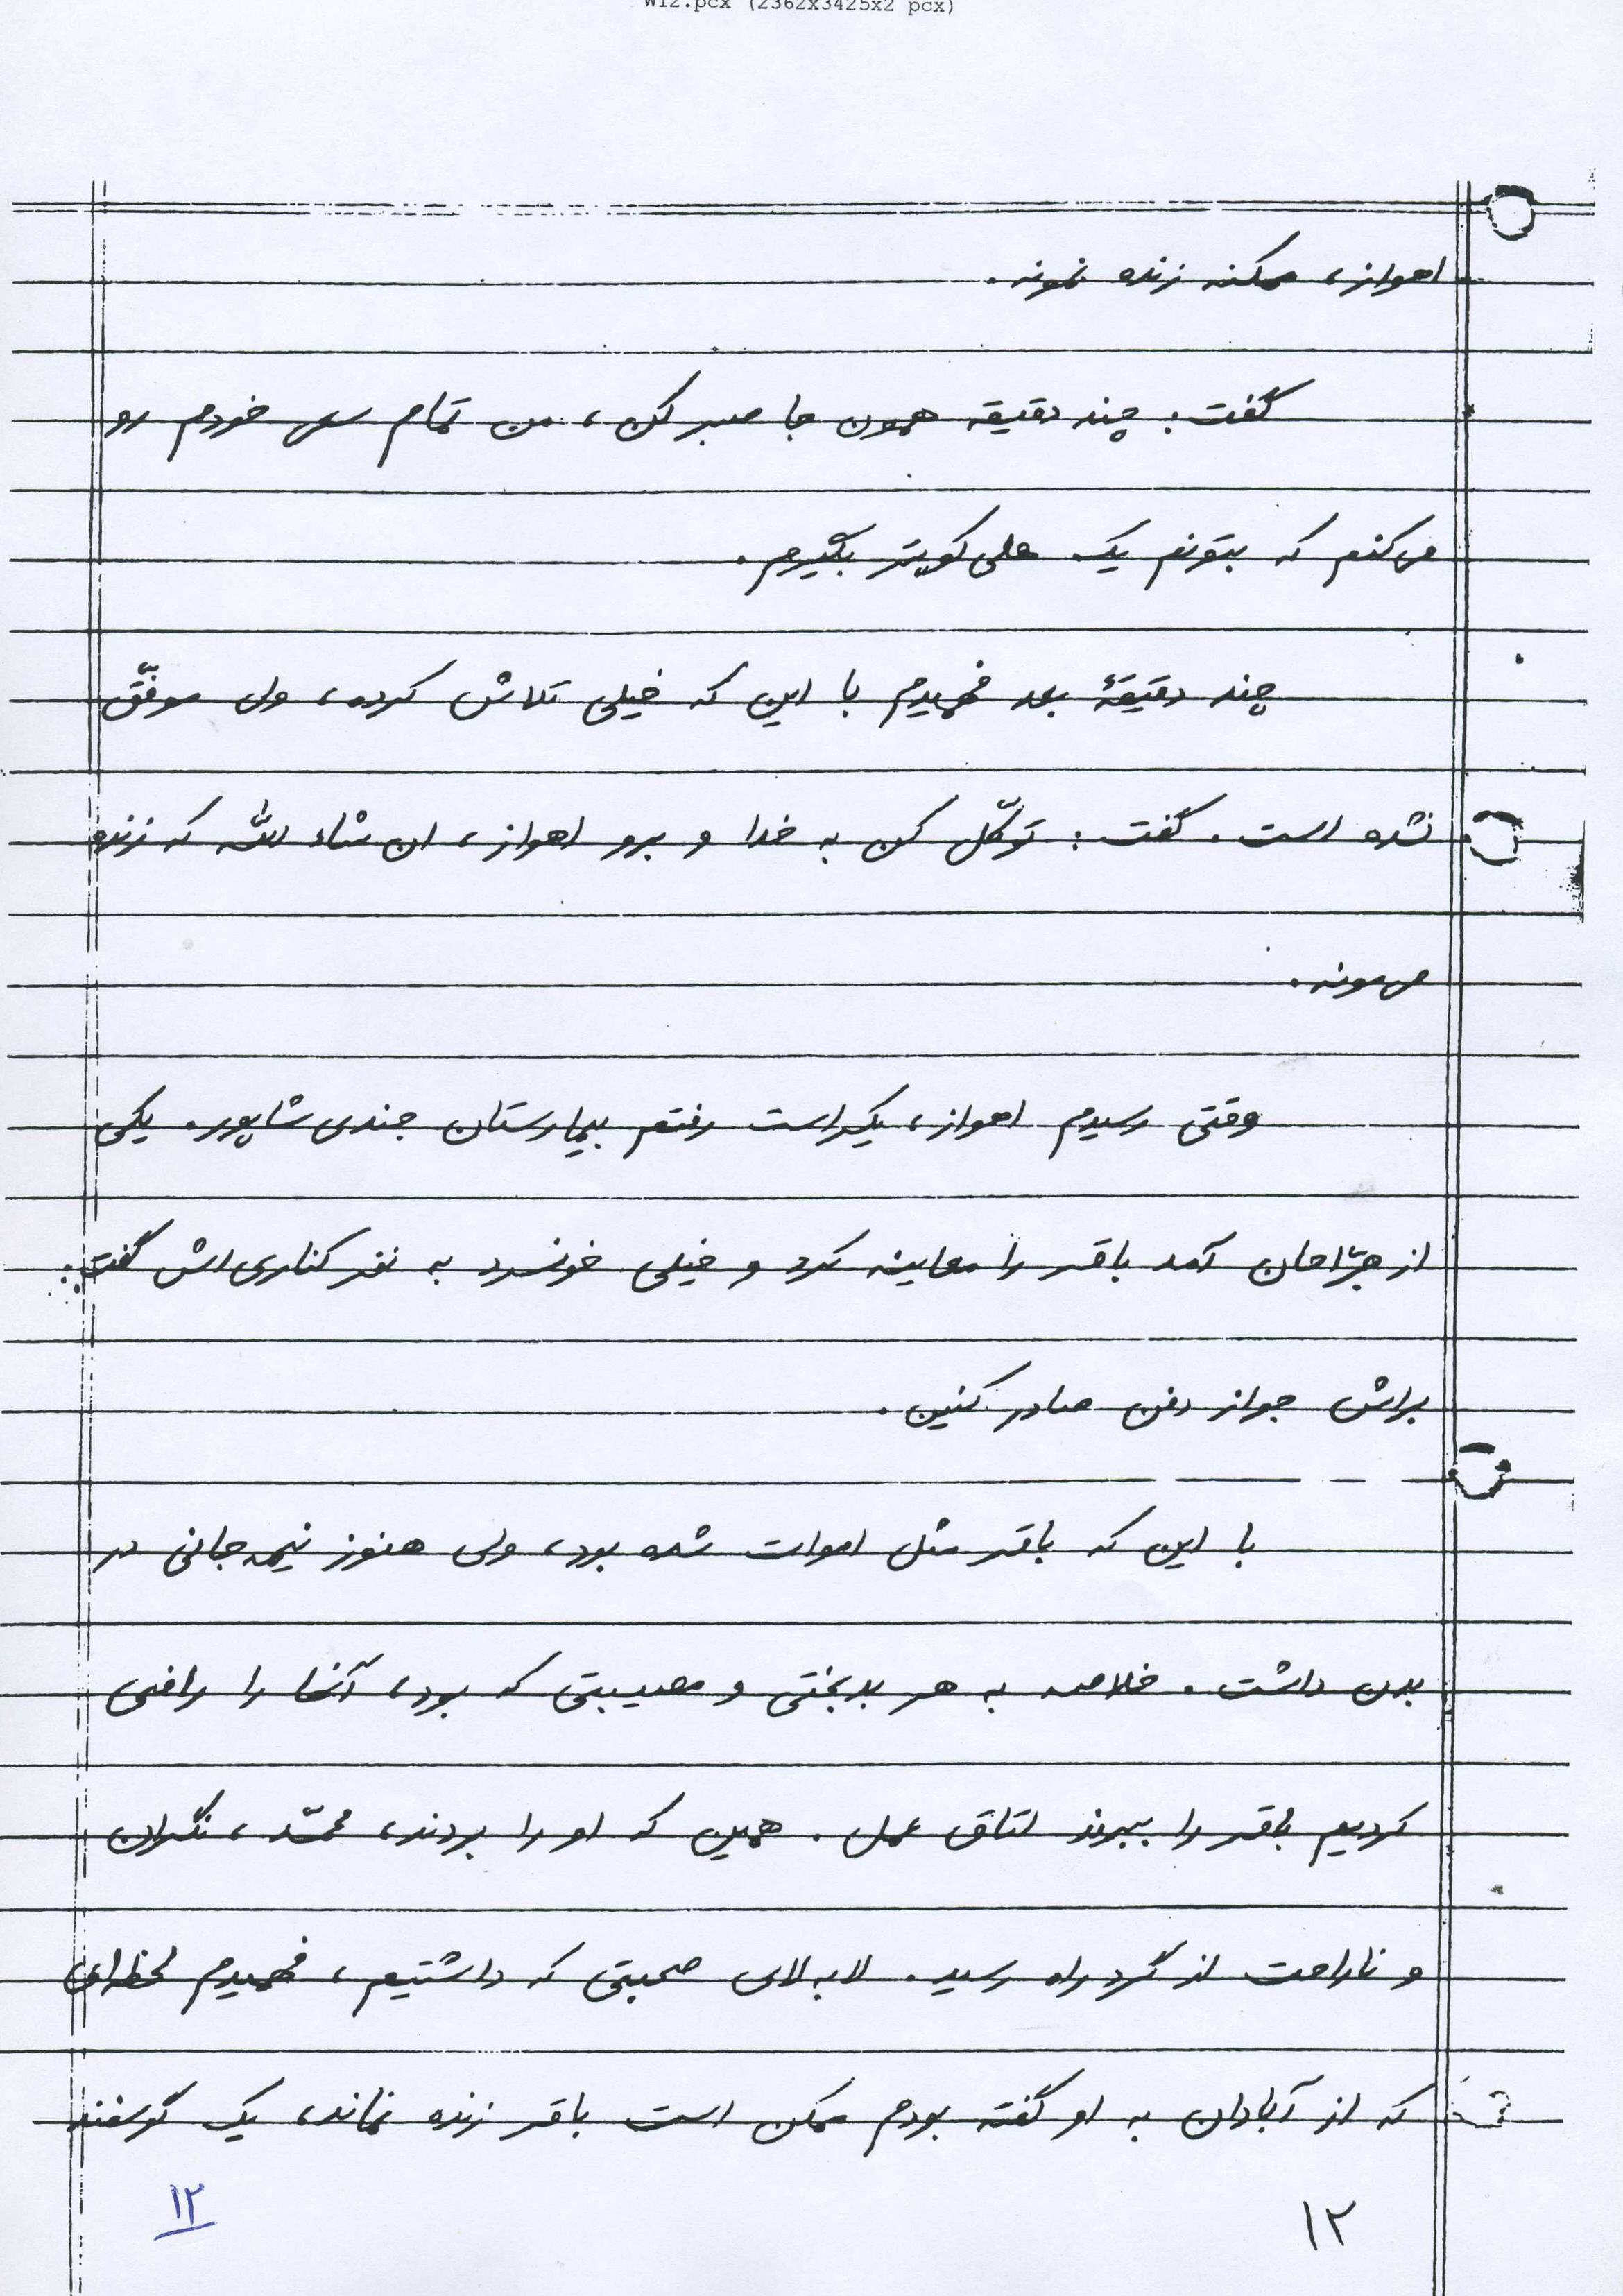 W12.pcx (2362x3425x2 pcx)
اهواز، ممکنه زنده نمونه.
گفت: چند دقیقه همون جا صبر کن، من تمام سعی خودم رو
می‌کنم که بتونم یک هلی‌کوپتر بگیرم.
چند دقیقهٔ بعد فهمیدم با این که خیلی تلاش کرده، ولی موفّق
نشده است. گفت: توکّل کن به خدا و برو اهواز، ان شاء الله که زنده
می‌مونه.
وقتی رسیدم اهواز، یکراست رفتم بیمارستان جندی‌شاپور. یکی
از جرّاحان آمد باقر را معاینه کرد و خیلی خونسرد به نفر کناری‌اش گفت:
براش جواز دفن صادر کنین.
با این که باقر مثل اموات شده بود، ولی هنوز نیمه‌جانی در
بدن داشت. خلاصه به هر بدبختی و مصیبتی که بود، آنها را راضی
کردیم باقر را ببرند اتاق عمل. همین که او را بردند، محمّد، نگران
و ناراحت از گرد راه رسید. لابه‌لای صحبتی که داشتیم، فهمیدم لحظه‌ای
که از آبادان به او گفته بودم ممکن است باقر زنده نماند، یک گوسفند
۱۲
۱۲